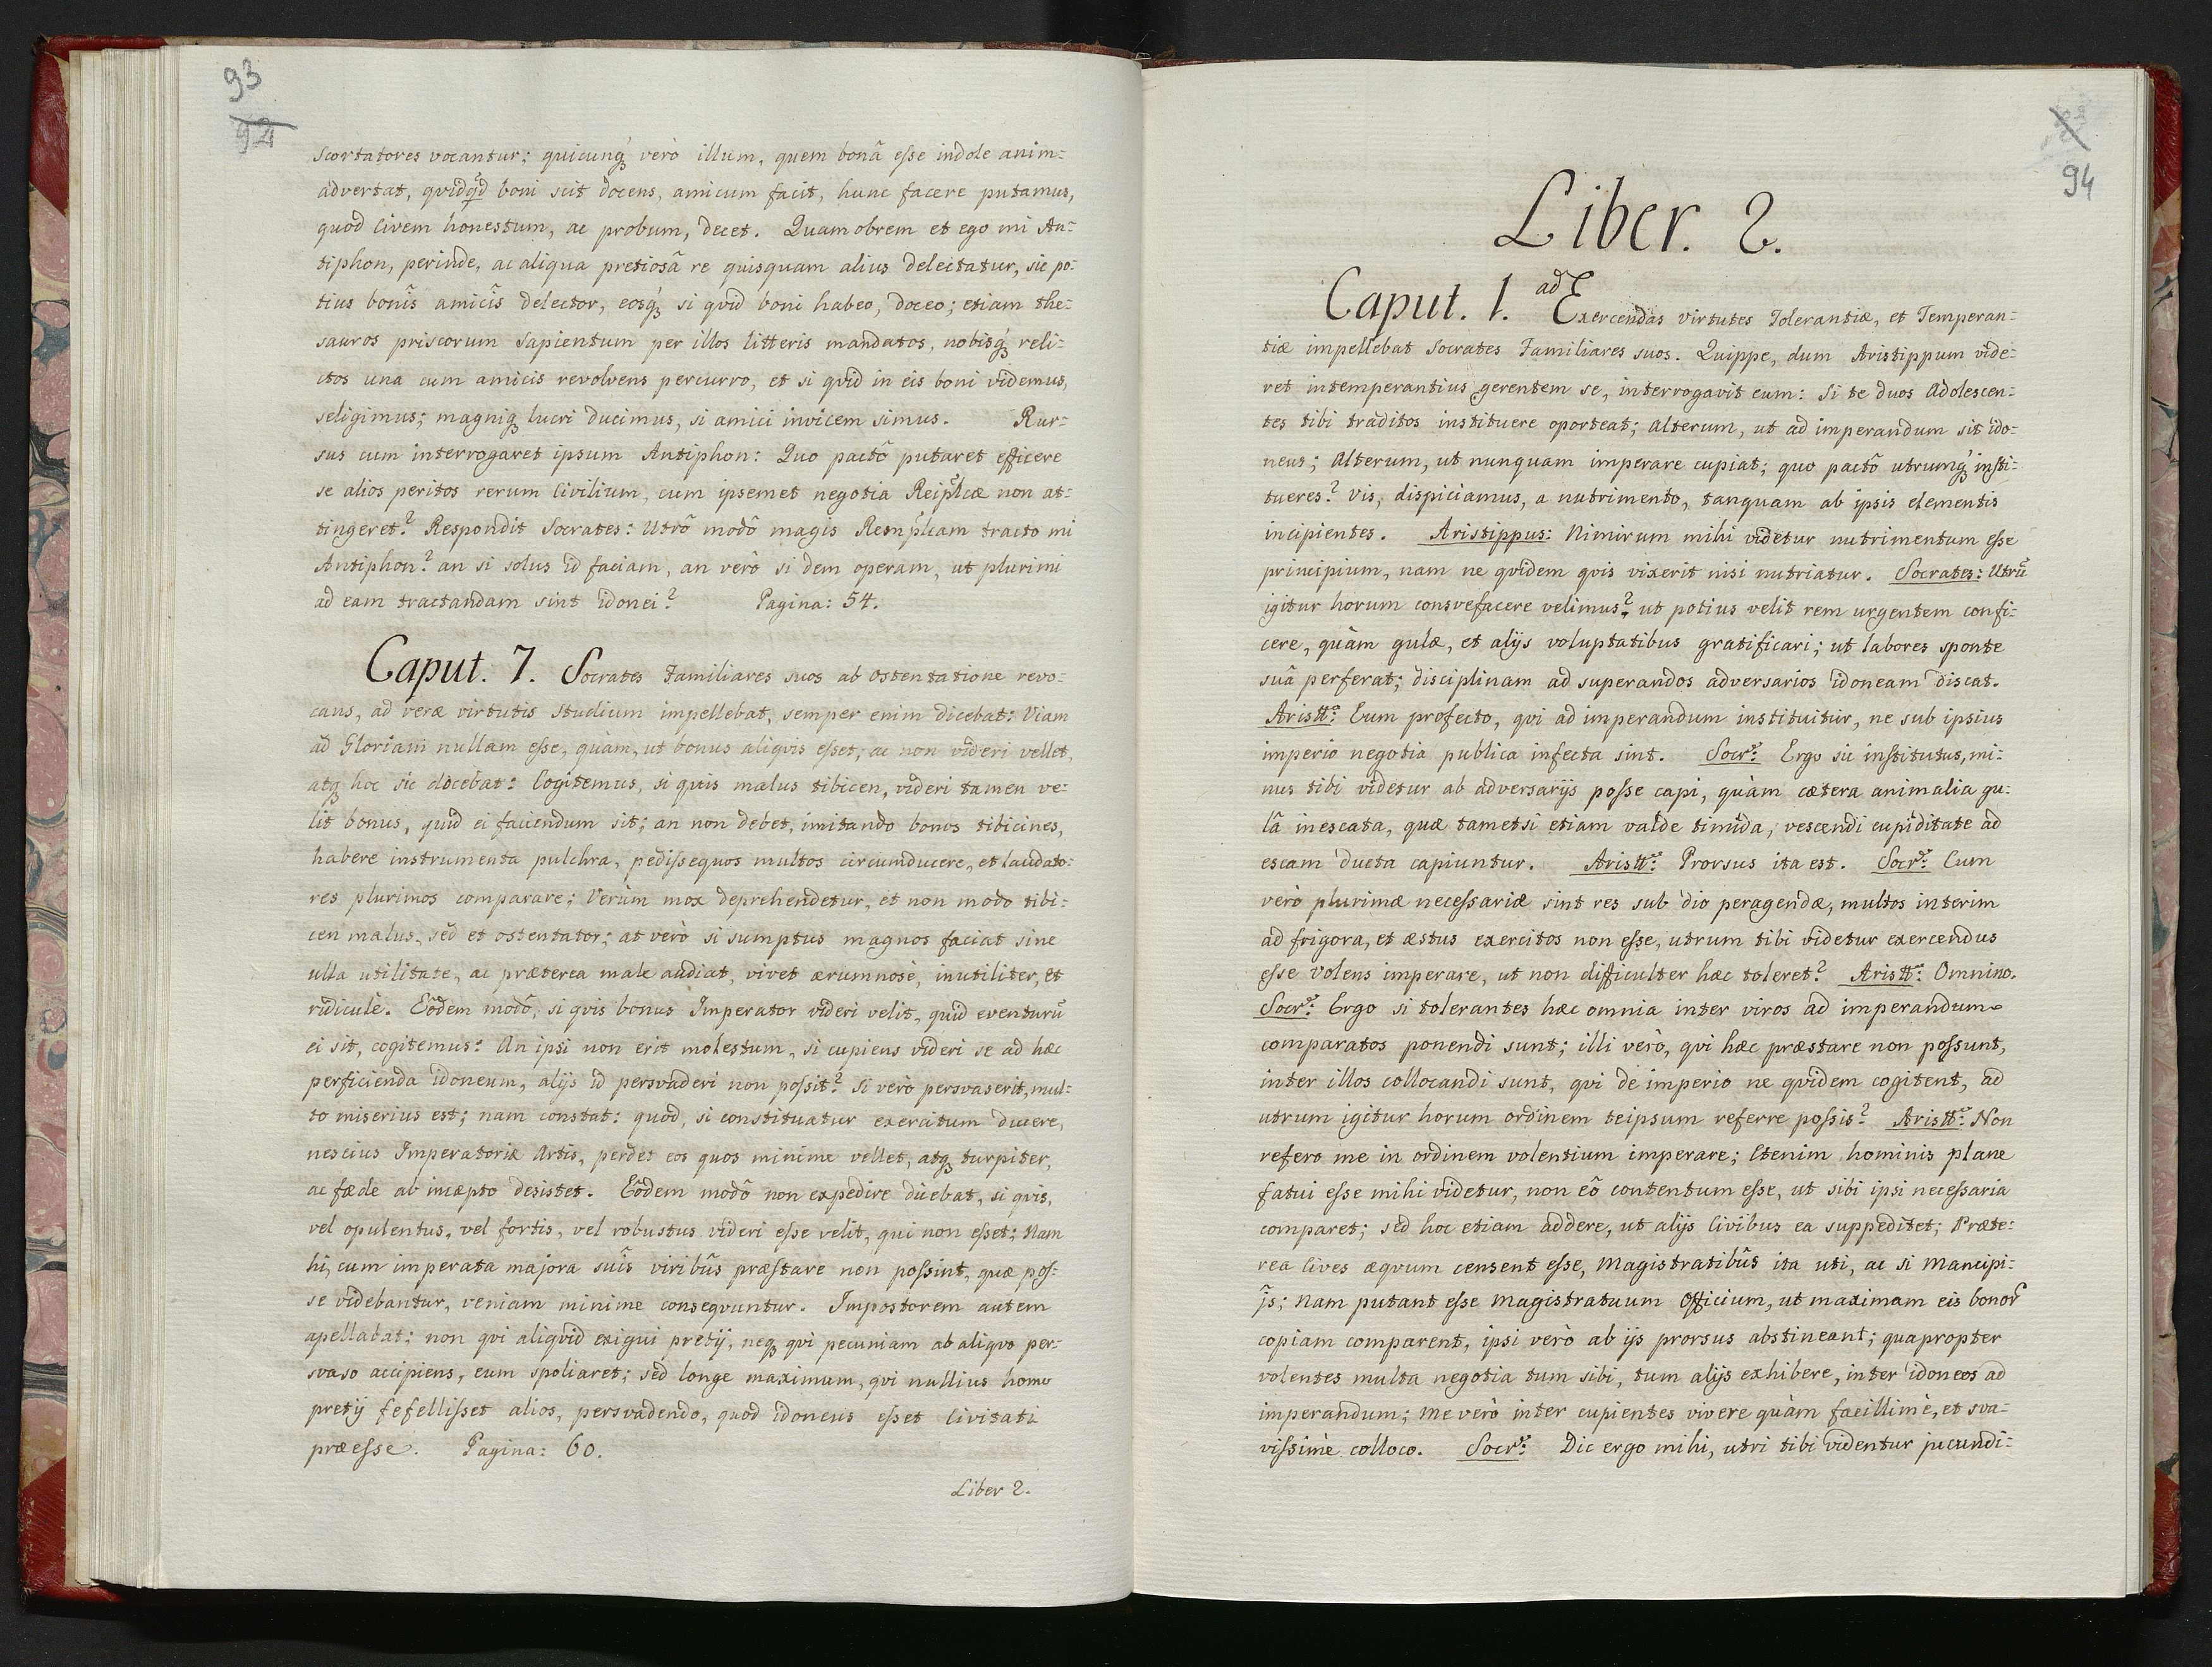 93
92
scortatores vocantur; quicunq́ʒ verò illum, quem bonâ eſse indole anim=
advertat, qvidq̃d boni scit docens, amicum facit, hunc facere putamus,
quod Civem honestum, ac probum, decet. Quamobrem et ego mi An=
tiphon, perinde, ac aliqua pretiosâ re quisquam alius delectatur, sic po=
tius bonîs amicîs delector, eosq́ʒ si qvid boni habeo, doceo; etiam the=
sauros priscorum Sapientum per illos litteris mandatos, nobisq́ʒ reli=
ctos una cum amicis revolvens percurro, et si qvid in eis boni videmus,
seligimus; magniqʒ lucri ducimus, si amici invicem simus. Rur=
sus cum interrogaret ipsum Antiphon: Quo pactô putaret efficere
se alios peritos rerum Civilium, cum ipsemet negotia Reip̃lcæ non at=
tingeret? Respondit Socrates: Utrô modô magis Remp̃lcam tracto mi
Antiphon? an si solus id faciam, an verò si dem operam, ut plurimi
ad eam tractandam sint idonei? Pagina: 54.
Caput. 7. Socrates Familiares suos ab ostentatione revo=
cans, ad veræ virtutis studium impellebat, semper enim dicebat: Viam
ad Gloriam nullam eſse, quàm, ut bonus aliqvis eſset; ac non videri vellet,
atqʒ hoc sic docebat: Cogitemus, si quis malus tibicen, videri tamen ve=
lit bonus, quid ei faciendum sit; an non debet, imitando bonos tibicines,
habere instrumenta pulchra, pediſsequos multos circumducere, et laudato=
res plurimos comparare; Verùm mox deprehendetur, et non modo tibi=
cen malus, sed et ostentator; at verò si sumptus magnos faciat sine
ulla utilitate, ac præterea male audiat, vivet ærumnosè, inutiliter, et
ridiculè. Eôdem modô, si qvis bonus Imperator videri velit, quid eventurũ
ei sit, cogitemus: An ipsi non erit molestum, si cupiens videri se ad hæc
perficienda idoneum, alijs id persvaderi non poſsit? Si verò persvaserit, mul=
to miserius est; nam constat: quod, si constituatur exercitum ducere,
nescius Imperatoriæ Artis, perdet eos quos minime vellet, atqʒ turpiter,
ac fæde ab incæpto desistet. Eôdem modô non expedire dicebat, si qvis,
vel opulentus, vel fortis, vel robustus videri eſse velit, qui non eſset; Nam
hi, cum imperata majora suîs viribûs præstare non poſsint, quæ poſ=
se videbantur, veniam minime conseqvuntur. Impostorem autem
apellabat; non qvi aliqvid exigui pretij, neqʒ qvi pecuniam ab aliqvo per=
svaso accipiens, eum spoliaret; sed longe maximum, qvi nullius homo
pretij fefelliſset alios, persvadendo, quod idoneus eſset Civitati
præeſse. Pagina: 60.
Liber 2.
94
Liber. 2.
Caput. 1. ad Exercendas virtutes Tolerantiæ, et Temperan=
tiæ impellebat Socrates Familiares suos. Quippe, dum Aristippum vide=
ret intemperantius gerentem se, interrogavit eum: Si te duos Adolescen=
tes tibi traditos instituere oporteat; Alterum, ut ad imperandum sit ido=
neus; Alterum, ut nunquam imperare cupiat; quo pactô utrumq́ʒ insti=
tueres? Vis, dispiciamus, a nutrimento, tanquam ab ipsis elementis
incipientes. Aristippus: Nimirum mihi videtur nutrimentum eſse
principium, nam ne qvidem qvis vixerit nisi nutriatur. Socrates: Utrũ
igitur horum consvefacere velimus? ut potius velit rem urgentem confi=
cere, quàm gulæ, et alijs voluptatibus gratificari; ut labores sponte
suâ perferat; disciplinam ad superandos adversarios idoneam discat.
Aristt̃: Eum profecto, qvi ad imperandum instituitur, ne sub ipsius
imperio negotia publica infecta sint. Socr̃: Ergo sic institutus, mi=
nus tibi videtur ab adversarijs poſse capi, quàm cætera animalia gu=
lâ inescata, quæ tametsi etiam valde timida, vescendi cupiditate ad
escam ducta capiuntur. Aristt̃: Prorsus ita est. Socr̃: Cum
verò plurimæ neceſsariæ sint res sub dio peragendæ, multos interim
ad frigora, et æstus exercitos non eſse, utrum tibi videtur exercendus
eſse volens imperare, ut non difficulter hæc toleret? Aristt̃: Omnino.
Socr̃: Ergo si tolerantes hæc omnia inter viros ad imperandum
comparatos ponendi sunt; illi verò, qvi hæc præstare non poſsunt,
inter illos collocandi sunt, qvi de imperio ne qvidem cogitent, ad
utrum igitur horum ordinem teipsum referre poſsis? Aristt̃: Non
refero me in ordinem volentium imperare; Etenim hominis plane
fatui eſse mihi videtur, non eô contentum eſse, ut sibi ipsi neceſsaria
comparet; sed hoc etiam addere, ut alijs Civibus ea suppeditet; Præte=
rea Cives æqvum censent eſse, Magistratibûs ita uti, ac si Mancipi=
js; Nam putant eſse Magistratuum Officium, ut maximam eis bonor̃
copiam comparent, ipsi verò ab ijs prorsus abstineant; quapropter
volentes multa negotia tum sibi, tum alijs exhibere, inter idoneos ad
imperandum; Me verò inter cupientes vivere quàm facillimè, et sva=
viſsimè colloco. Socr̃: Dic ergo mihi, utri tibi videntur jucundi=